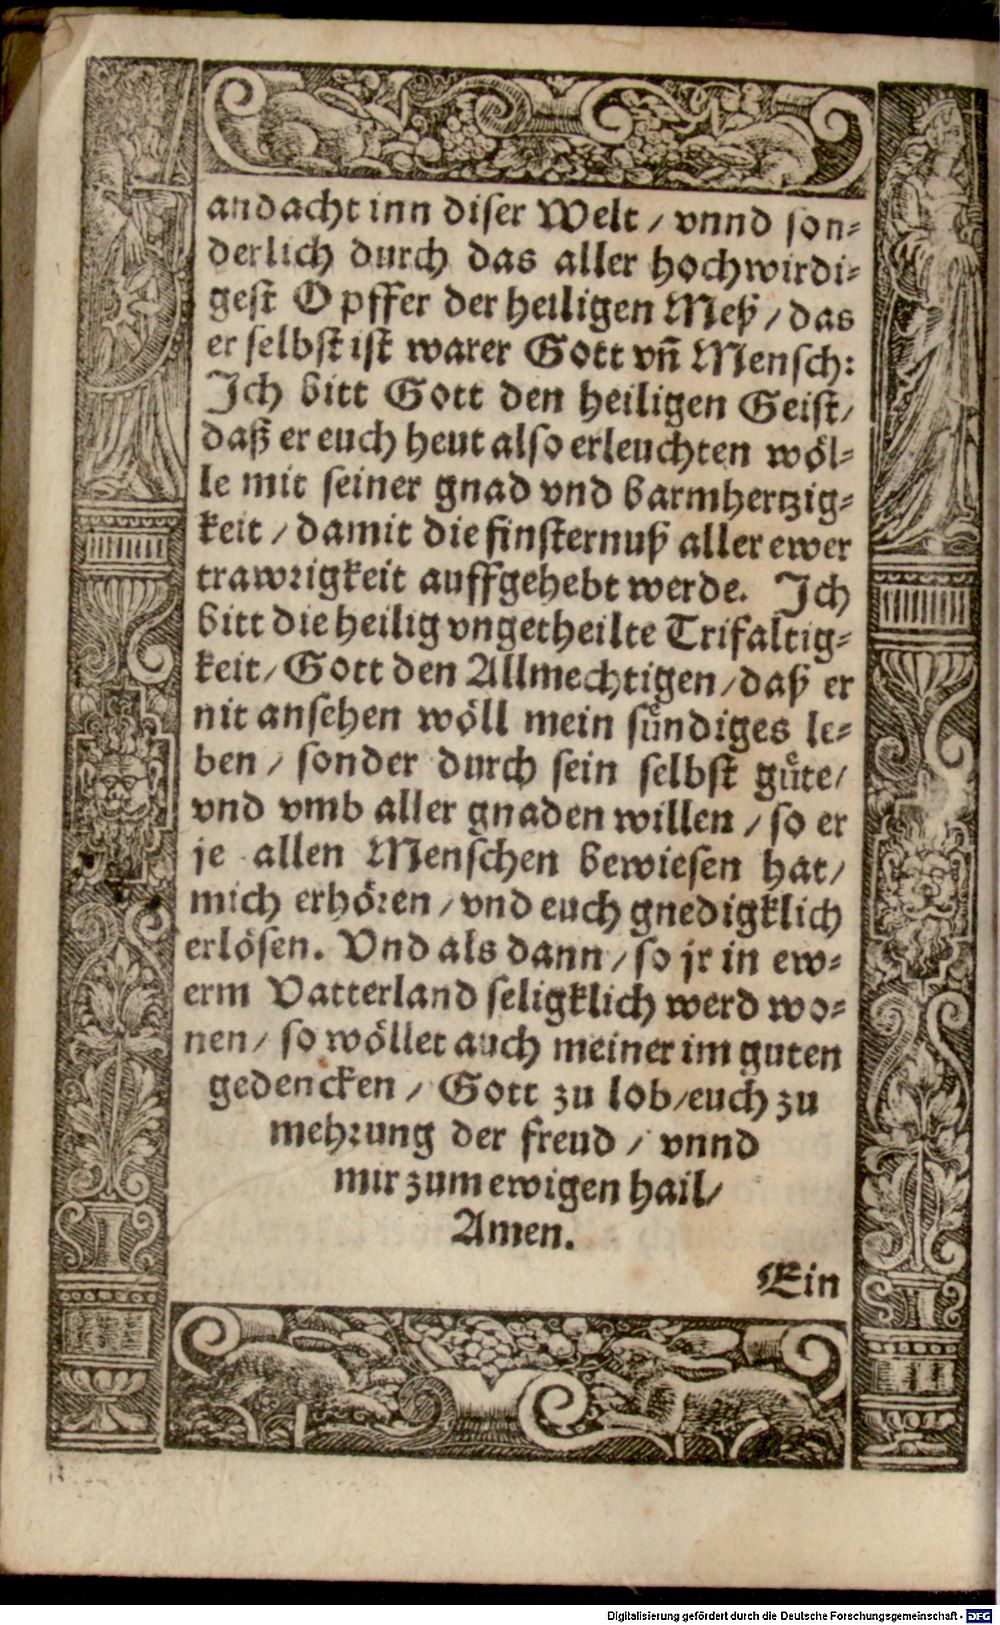 andacht inn diser Welt / vnnd son⸗
derlich durch das aller hochwirdi⸗
gest Opffer der heiligen Meß / das
er selbst ist warer Gott vñ Mensch:
Ich bitt Gott den heiligen Geist/
daß er euch heut also erleuchten wöl⸗
le mit seiner gnad vnd barmhertzig⸗
keit / damit die finsternuß aller ewer
trawrigkeit auffgehebt werde. Ich
bitt die heilig vngetheilte Trifaltig⸗
keit / Gott den Allmechtigen / daß er
nit ansehen wöll mein sündiges le⸗
ben / sonder durch sein selbst güte/
vnd vmb aller gnaden willen / so er
je allen Menschen bewiesen hat/
mich erhören / vnd euch gnedigklich
erlösen. Vnd als dann / so jr in ew⸗
erm Vatterland seligklich werd wo⸗
nen / so wöllet auch meiner im guten
gedencken / Gott zu lob/euch zu
mehrung der freud / vnnd
mir zum ewigen hail/
Amen.
Ein
Digitalisierung gefördert durch die Deutsche Forschungsgemeinschaft - DFG